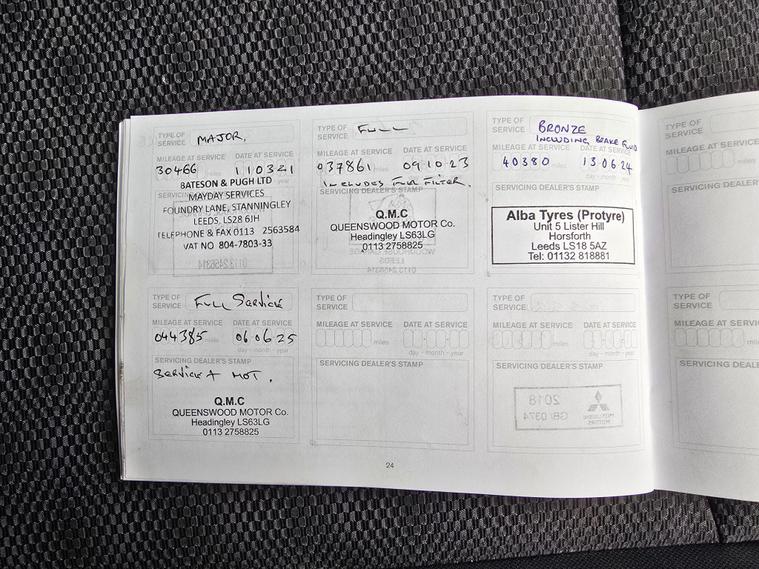 TYPE OF SERVICE MAJOR.
MILEAGE AT SERVICE DATE AT SERVICE
30466 miles 110321
BATESON & PUGH LTD
MAYDAY SERVICES
FOUNDRY LANE, STANNINGLEY
LEEDS. LS28 6JH
TELEPHONE & FAX 0113 2563584
VAT NO 804-7803-33
TYPE OF SERVICE FULL
MILEAGE AT SERVICE DATE AT SERVICE
037861 09 10 23
INCLUDES FUEL FILTER.
SERVICING DEALER'S STAMP
Q.M.C
QUEENSWOOD MOTOR Co.
Headingley LS63LG
0113 2758825
TYPE OF SERVICE BRONZE
INCLUDING BRAKE FLUID
MILEAGE AT SERVICE DATE AT SERVICE
40380 miles 13.06.24
SERVICING DEALER'S STAMP
Alba Tyres (Protyre)
Unit 5 Lister Hill
Horsforth
Leeds LS18 5AZ
Tel: 01132 818881
TYPE OF SERVICE FULL SERVICE
MILEAGE AT SERVICE DATE AT SERVICE
044385 miles 06 06 25
day - month - year
SERVICING DEALER'S STAMP
SERVICE + MOT.
Q.M.C
QUEENSWOOD MOTOR Co.
Headingley LS63LG
0113 2758825
TYPE OF SERVICE
MILEAGE AT SERVICE DATE AT SERVICE
miles
day - month - year
SERVICING DEALER'S STAMP
TYPE OF SERVICE
MILEAGE AT SERVICE DATE AT SERVICE
miles
day - month - year
SERVICING DEALER'S STAMP
24
TYPE OF SERVICE
MILEAGE AT SERVICE
miles
SERVICING DEALER'S
TYPE OF SERVICE
MILEAGE AT SERVICE
miles
SERVICING DEALER'S